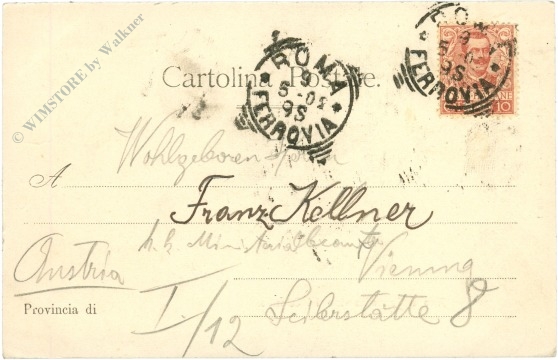 © WIMSTORE by Walkner
Cartolina Postale.
ROMA
FERROVIA
ROMA
FERROVIA
10
Wohlgeboren Herrn
A
Franz Kellner
k.k. Ministerialbeamter
Austria
Vienna
Provincia di
I/12 Seilerstätte 8